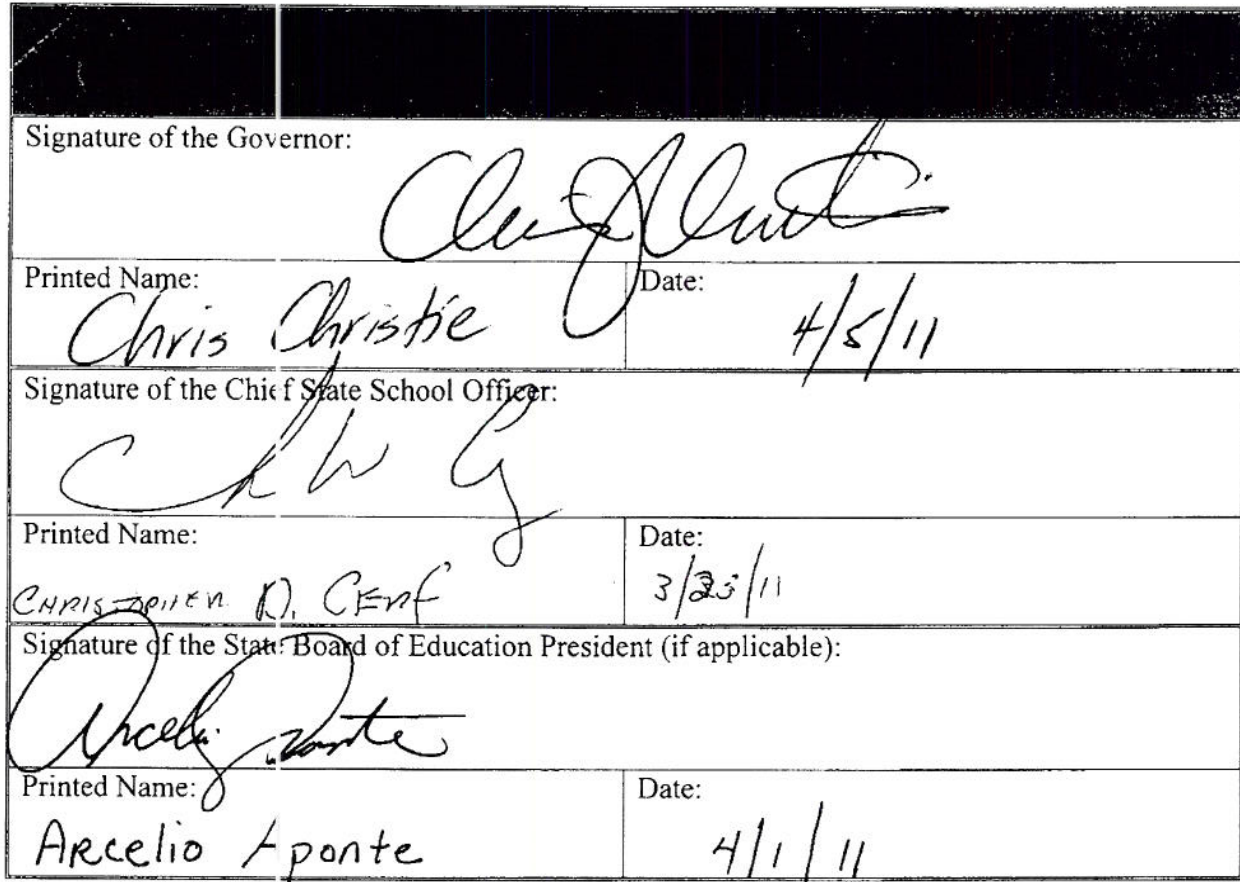 Signature of the Governor:
Printed Name:
Chris Christie
Date:
4/5/11
Signature of the Chief State School Officer:
Printed Name:
CHRISTOPHER D. CERF
Date:
3/25/11
Signature of the State Board of Education President (if applicable):
Arcelio Aponte
Printed Name:
Arcelio Aponte
Date:
4/1/11